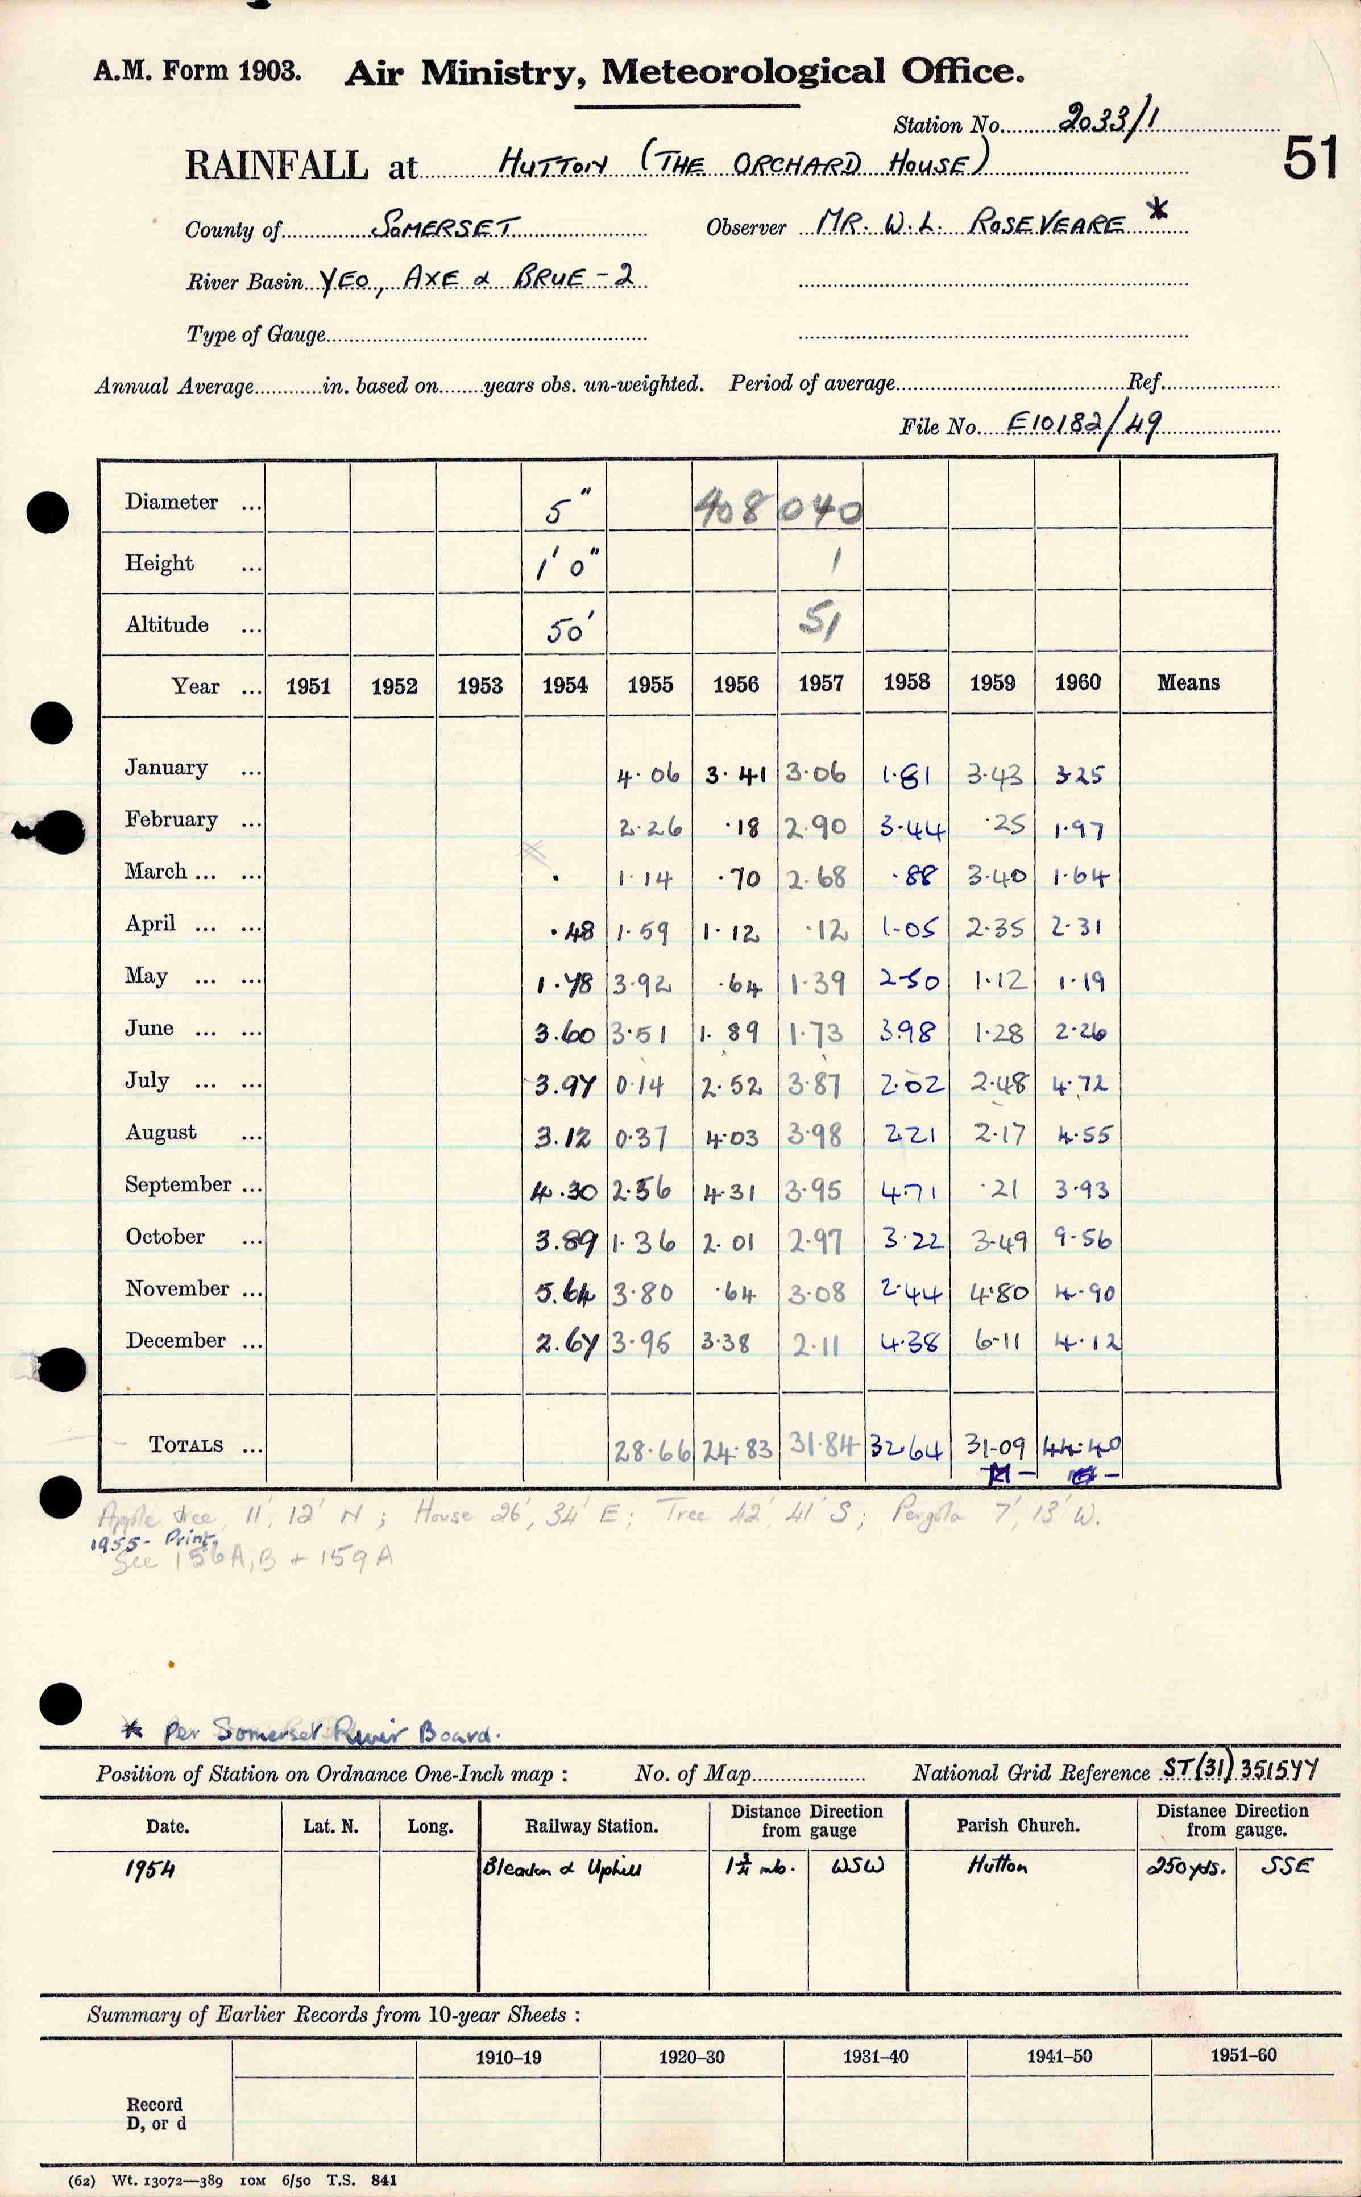 A.M. Form 1903. Air Ministry, Meteorological Office.
Station No. 2033/1
51
RAINFALL at HUTTON (THE ORCHARD HOUSE)
County of SOMERSET Observer MR. W.L. ROSEVEARE *
River Basin YEO, AXE & BRUE - 2
Type of Gauge
Annual Average in. based on years obs. un-weighted. Period of average Ref.
File No. E10182/49
Diameter ... 5" 408 040
Height ... 1' 0" 1
Altitude ... 50' 51
Year ... 1951 1952 1953 1954 1955 1956 1957 1958 1959 1960 Means
January ... 4.06 3.41 3.06 1.81 3.43 3.25
February ... 2.26 .18 2.90 3.44 .25 1.97
March ... ... . 1.14 .70 2.68 .88 3.40 1.64
April ... ... .48 1.59 1.12 .12 1.05 2.35 2.31
May ... ... 1.78 3.92 .64 1.39 2.50 1.12 1.19
June ... ... 3.60 3.51 1.89 1.73 3.98 1.28 2.26
July ... ... 3.97 0.14 2.52 3.87 2.02 2.48 4.72
August ... 3.12 0.37 4.03 3.98 2.21 2.17 4.55
September ... 4.30 2.56 4.31 3.95 4.71 .21 3.93
October ... 3.89 1.36 2.01 2.97 3.22 3.49 9.56
November ... 5.64 3.80 .64 3.08 2.44 4.80 4.90
December ... 2.67 3.95 3.38 2.11 4.38 6.11 4.12
TOTALS ... 28.66 24.83 31.84 32.64 31.09 44.40
Apple tree 11', 12' N ; House 26', 34' E ; Tree 42', 41' S ; Pergola 7', 13' W.
1955- Print.
See 156A,B + 159A
* Per Somerset River Board.
Position of Station on Ordnance One-Inch map : No. of Map National Grid Reference ST(31)351577
Date. Lat. N. Long. Railway Station. Distance Direction from gauge Parish Church. Distance Direction from gauge.
1954 Bleadon & Uphill 1¾ mls. WSW Hutton 250yds. SSE
Summary of Earlier Records from 10-year Sheets :
1910–19 1920–30 1931–40 1941–50 1951–60
Record
D, or d
(62) Wt. 13072—389 10M 6/50 T.S. 841